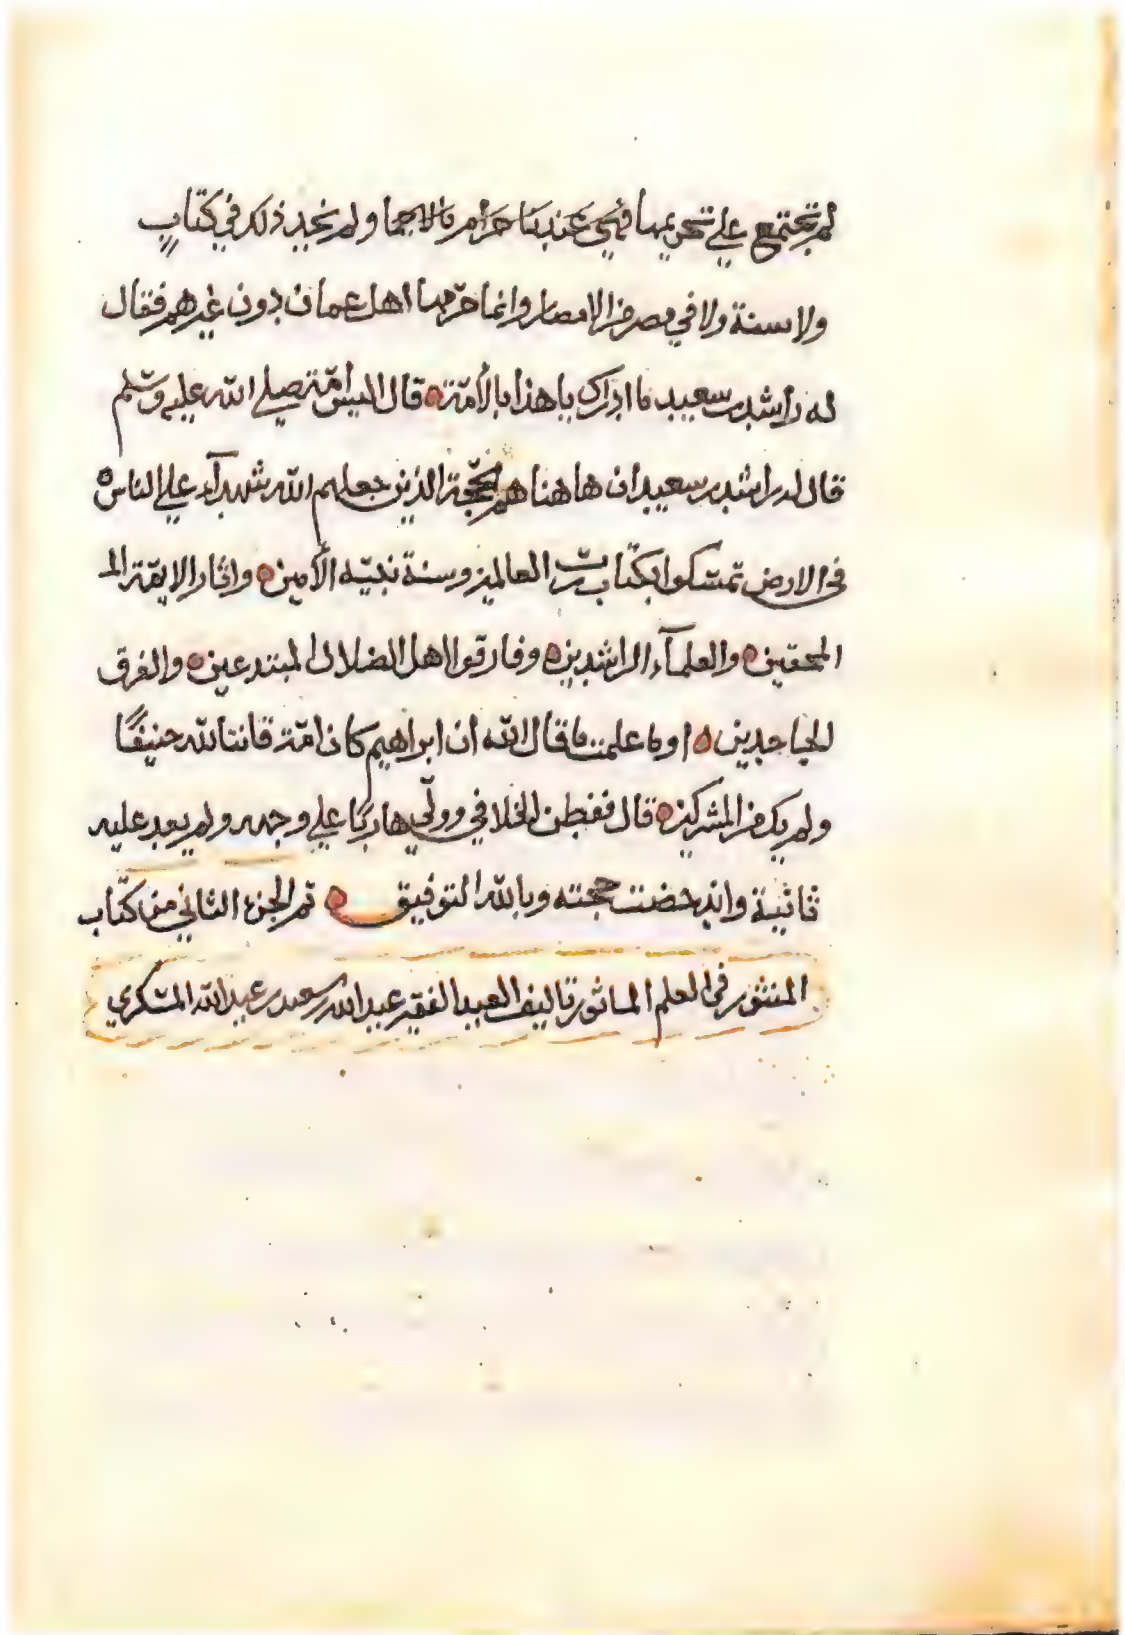 لم تجتمع علي تحريمها فهي عندنا حرام بالاجما ولم نجد ذلك في كتاب
ولا سنة ولا في مصر من الامصار وانما حرمها اهل عمان دون غيرهم فقال
له راشد بن سعيد ما ادراك يا هذا بالأمّة قال اليس أمّته صلي الله عليه وسّلم
قال له راشد بن سعيد ان هاهنا هم الحجّة الذين جعلهم الله شهدآء علي الناس
في الارض تمسّكوا بكتاب ربّ العالمين وسنة نبيّه الأمين واثار الايمّة الم
المحقين والعلمآء الراشدين وفارقوا اهل الضلال المبتدعين والفرق
الجاحدين او ما علمت ما قال الله ان ابراهيم كان امّة قانتا لله حنيفًا
ولم يك من المشركين قال ففطن الخلافي وولّي هاربًا علي وجهه ولم يعد عليه
ثانية واندحضت حجته وبالله التوفيق تم الجزء الثاني من كتاب
المنثور في العلم الماثور تاليف العبد الفقير عبدالله بن سعيد بن عبدالله المشكري